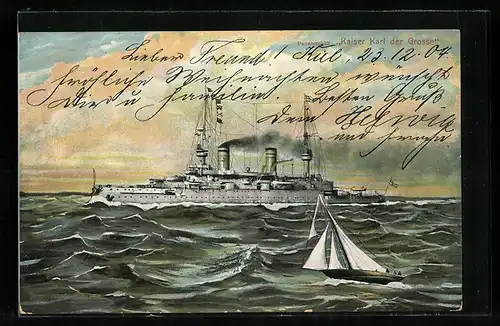 Panzerschiff „Kaiser Karl der Grosse"
Lieber Freund! Kiel, 23.12.04
Fröhliche Weihnachten wünscht
Dir u Familie. Besten Gruß
Dein
und Frau